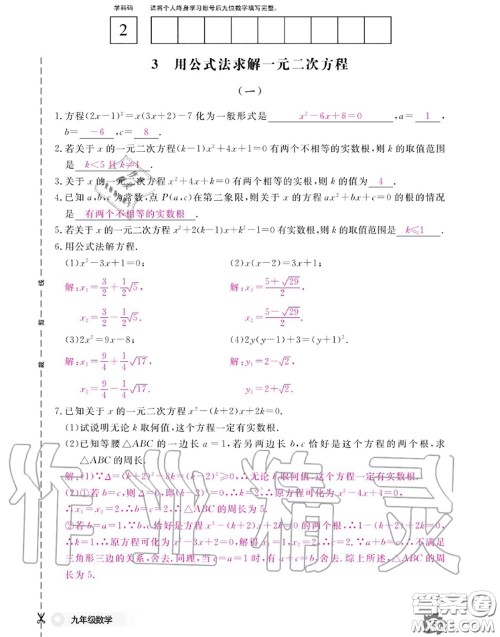 学科码 请将个人终身学习账号后九位数字填写完整。
2
3 用公式法求解一元二次方程
(一)
1.方程(2x-1)²=x(3x+2)-7化为一般形式是 x²-6x+8=0 ,a= 1 ,
b= -6 ,c= 8 .
2.若关于x的一元二次方程(k-1)x²+4x+1=0有两个不相等的实数根,则k的取值范
围是 k<5且k≠1 .
3.关于x的一元二次方程x²+4x+k=0有两个相等的实根,则k的值为 4 .
4.已知a,b,c为常数,点P(a,c)在第二象限,则关于x的方程ax²+bx+c=0的根的情况
是 有两个不相等的实数根 .
5.若关于x的一元二次方程x²+2(k-1)x+k²-1=0有实数根,则k的取值范围是 k≤1 .
6.用公式法解方程.
(1)x²-3x+1=0; (2)x(x-2)=3x+1;
解:x₁=3/2+1/2√5, 解:x₁=(5+√29)/2,
x₂=3/2-1/2√5. x₂=(5-√29)/2.
(3)2x²=9x-8; (4)2y(y-1)+3=(y+1)².
解:x₁=9/4+1/4√17, 解:y₁=2-√2,
x₂=9/4-1/4√17. y₂=2+√2.
7.已知关于x的一元二次方程x²-(k+2)x+2k=0.
(1)试说明无论k取何值,这个方程一定有实数根.
(2)已知等腰△ABC的一边长a=1,若另两边长b,c恰好是这个方程的两个根,求
△ABC的周长.
解:(1)∵Δ=(k+2)²-8k=(k-2)²≥0,∴无论k取何值,这个方程一定有实数根.
(2)①若b=c,则Δ=0,即(k-2)²=0,∴k=2,∴原方程可化为x²-4x+4=0,
∴x₁=x₂=2,∴b=c=2,∴△ABC的周长为5.
②若a=b=1,∵b,c恰好是方程x²-(k+2)x+2k=0的两个根,∴1-(k+2)+2k=0,
∴k=1,∴原方程可化为x²-3x+2=0,解得x₁=1,x₂=2,∴c=2,∵1+1=2,不满足
三角形三边的关系,舍去.同理,当a=c=1时,有b=2,舍去.综上所述,△ABC的周
长为5.
线
剪
裁
九年级数学
作业精灵
答案圈